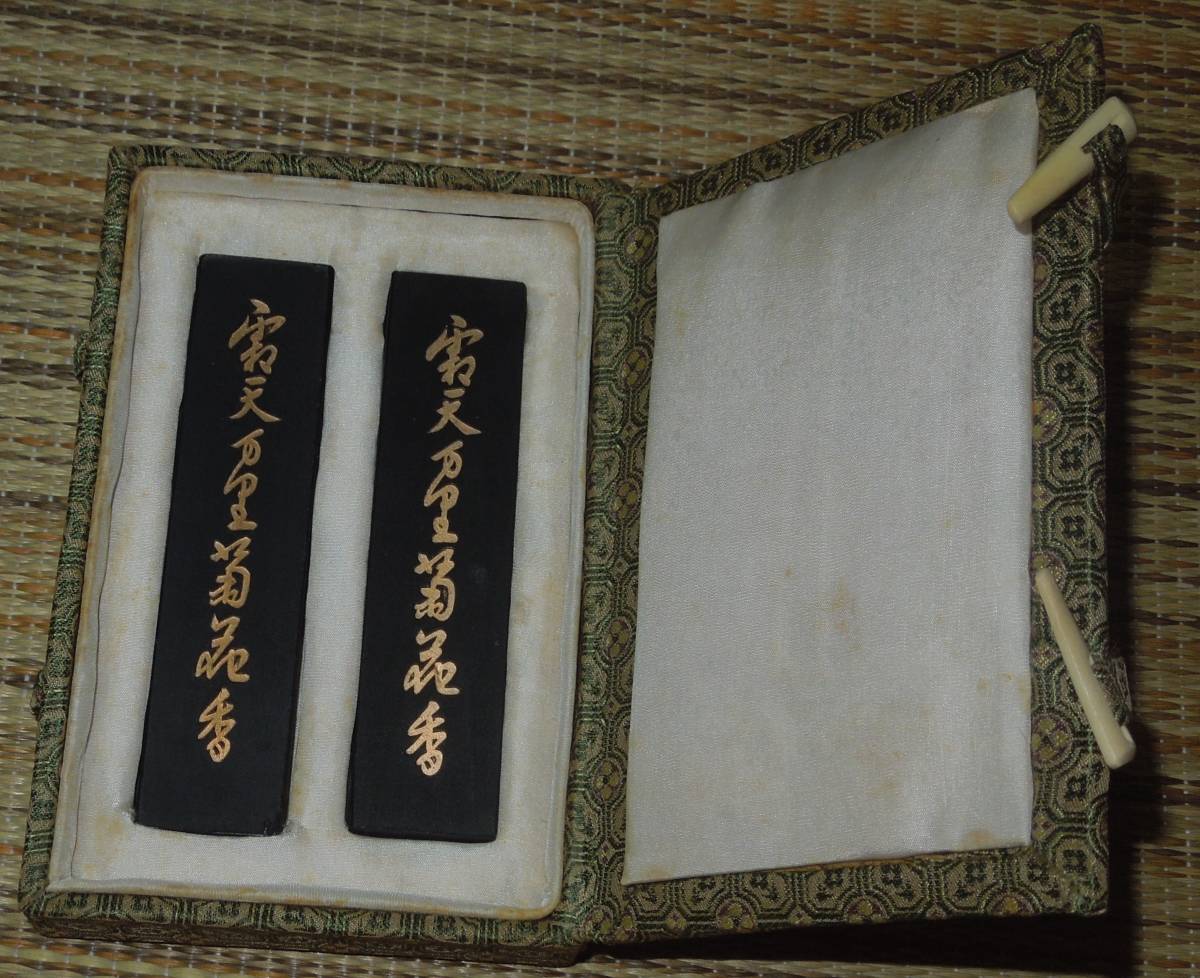 霜天万里菊花香
霜天万里菊花香